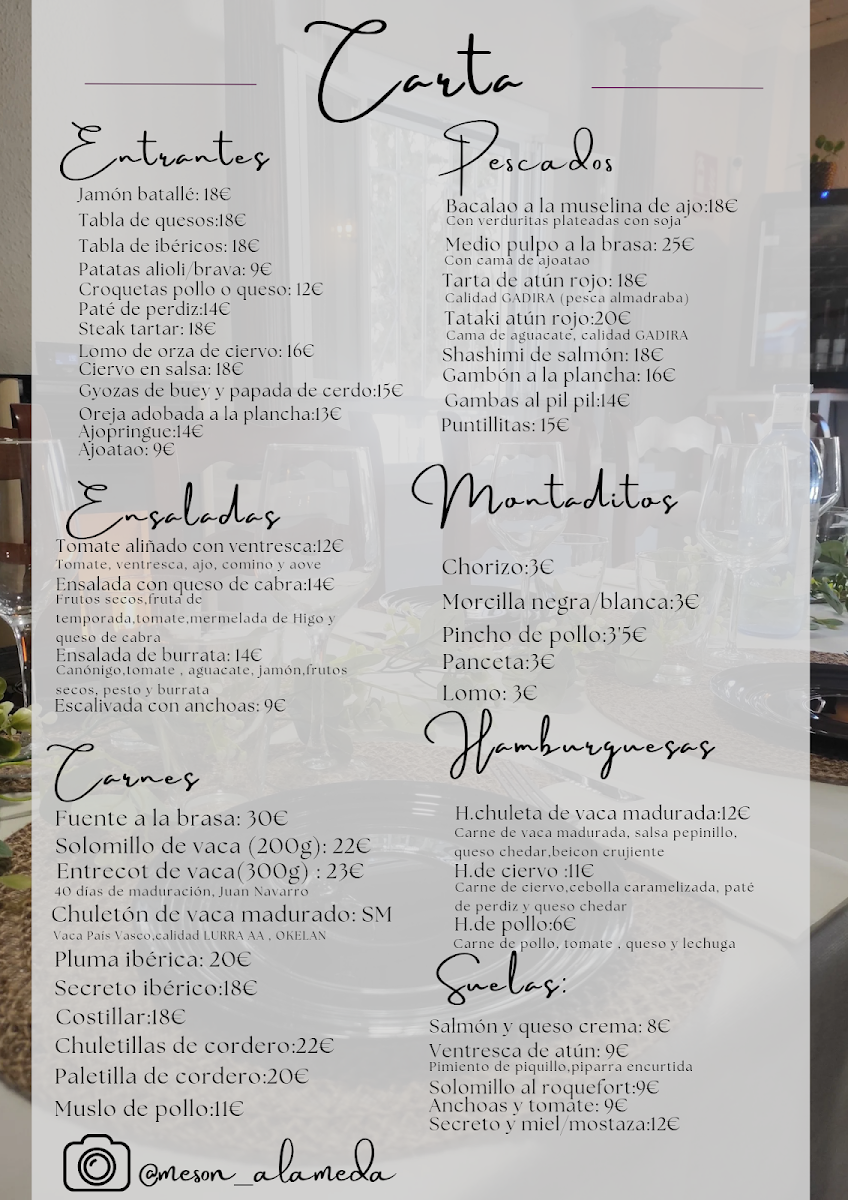 Carta
Entrantes
Jamón batallé: 18€
Tabla de quesos:18€
Tabla de ibéricos: 18€
Patatas alioli/brava: 9€
Croquetas pollo o queso: 12€
Paté de perdiz:14€
Steak tartar: 18€
Lomo de orza de ciervo: 16€
Ciervo en salsa: 18€
Gyozas de buey y papada de cerdo:15€
Oreja adobada a la plancha:13€
Ajopringue:14€
Ajoatao: 9€
Ensaladas
Tomate aliñado con ventresca:12€
Tomate, ventresca, ajo, comino y aove
Ensalada con queso de cabra:14€
Frutos secos,fruta de
temporada,tomate,mermelada de Higo y
queso de cabra
Ensalada de burrata: 14€
Canónigo,tomate , aguacate, jamón,frutos
secos, pesto y burrata
Escalivada con anchoas: 9€
Carnes
Fuente a la brasa: 30€
Solomillo de vaca (200g): 22€
Entrecot de vaca(300g) : 23€
40 días de maduración, Juan Navarro
Chuletón de vaca madurado: SM
Vaca País Vasco,calidad LURRA AA , OKELAN
Pluma ibérica: 20€
Secreto ibérico:18€
Costillar:18€
Chuletillas de cordero:22€
Paletilla de cordero:20€
Muslo de pollo:11€
@meson_alameda
Pescados
Bacalao a la muselina de ajo:18€
Con verduritas plateadas con soja"
Medio pulpo a la brasa: 25€
Con cama de ajoatao
Tarta de atún rojo: 18€
Calidad GADIRA (pesca almadraba)
Tataki atún rojo:20€
Cama de aguacate, calidad GADIRA
Shashimi de salmón: 18€
Gambón a la plancha: 16€
Gambas al pil pil:14€
Puntillitas: 15€
Montaditos
Chorizo:3€
Morcilla negra/blanca:3€
Pincho de pollo:3'5€
Panceta:3€
Lomo: 3€
Hamburguesas
H.chuleta de vaca madurada:12€
Carne de vaca madurada, salsa pepinillo,
queso chedar,beicon crujiente
H.de ciervo :11€
Carne de ciervo,cebolla caramelizada, paté
de perdiz y queso chedar
H.de pollo:6€
Carne de pollo, tomate , queso y lechuga
Suelas:
Salmón y queso crema: 8€
Ventresca de atún: 9€
Pimiento de piquillo,piparra encurtida
Solomillo al roquefort:9€
Anchoas y tomate: 9€
Secreto y miel/mostaza:12€